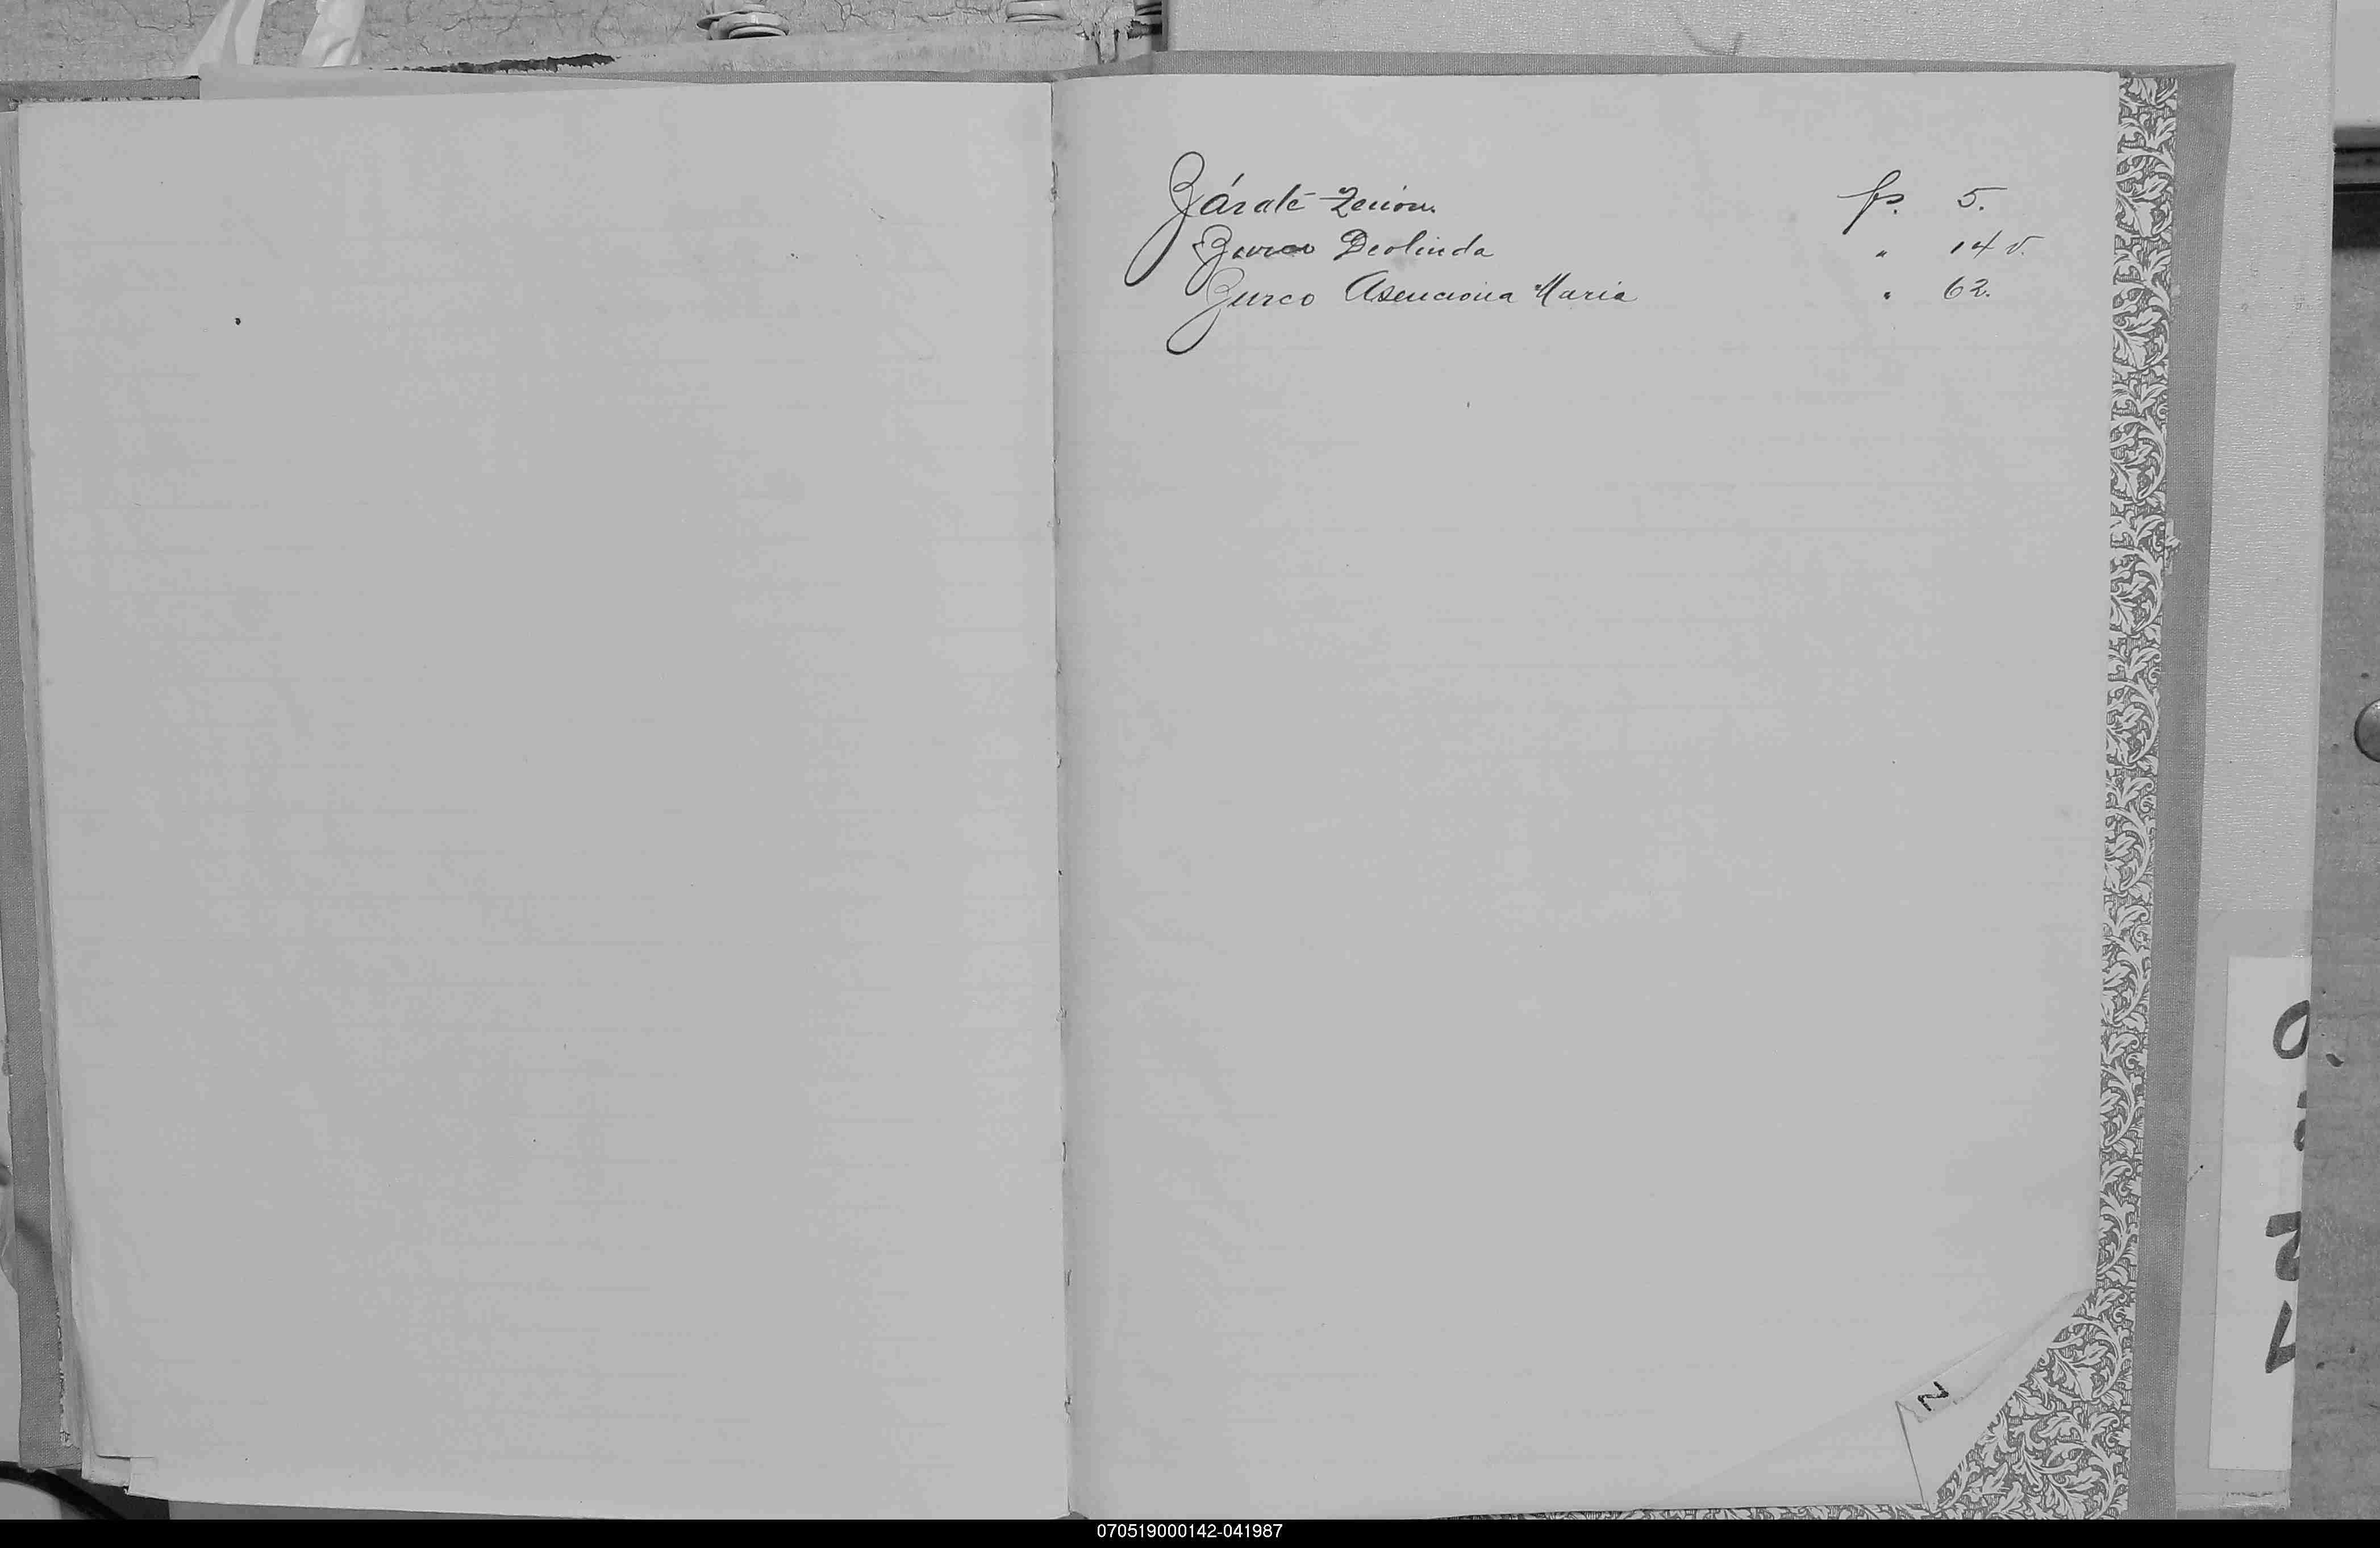 Zárate Zenón. fs. 5.
Zurco Deolinda " 14 v.
Zurco Asenciona Maria " 62.
Z
070519000142-041987